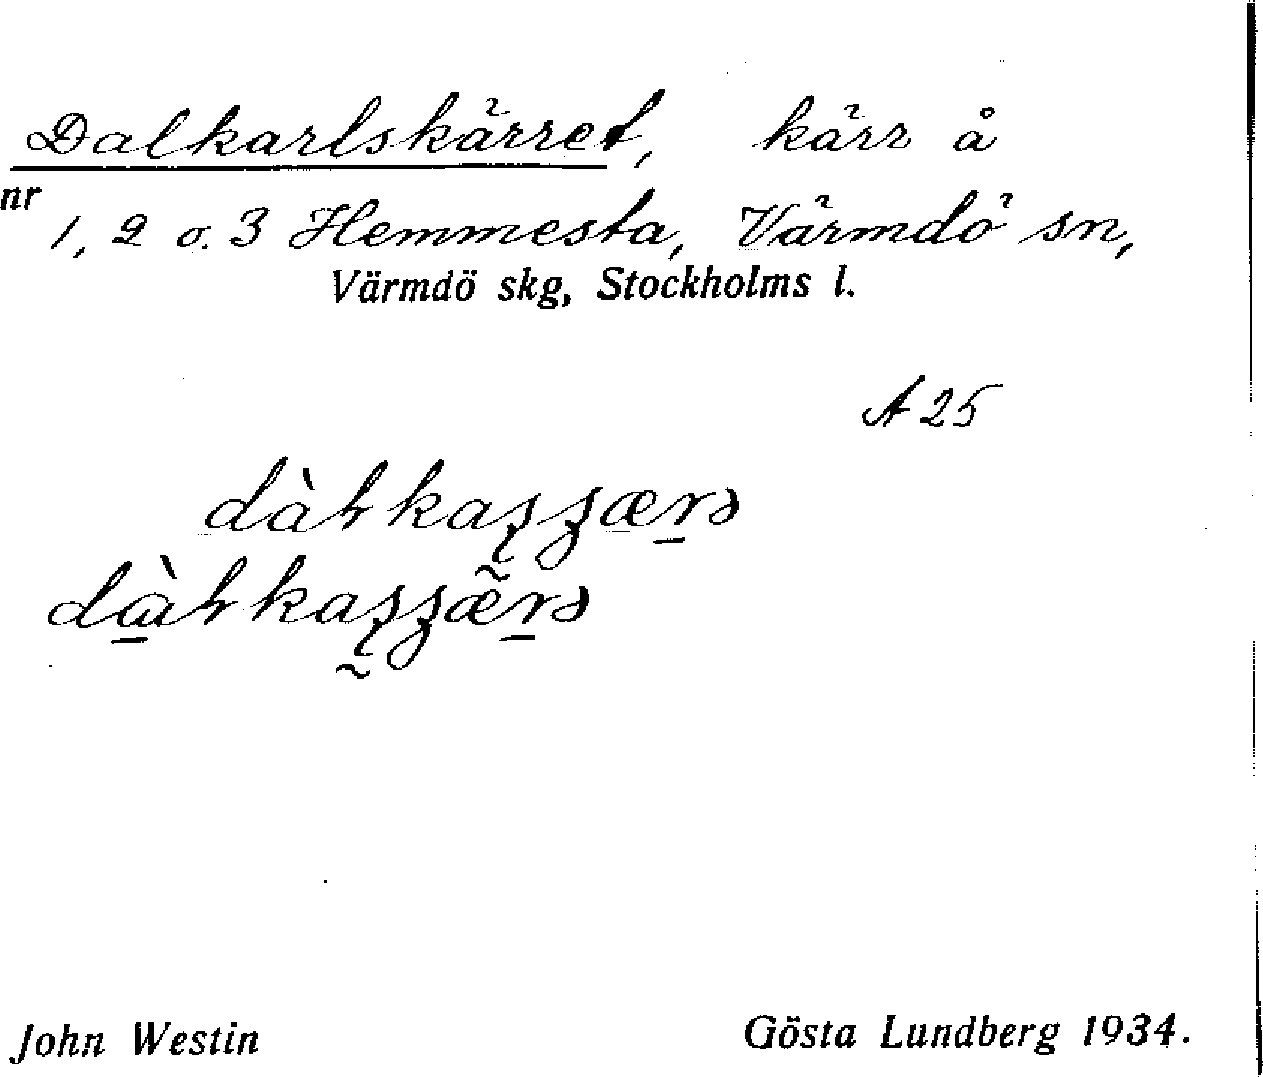 Dalkarlskärret, kärr å
nr 1, 2 o. 3 Hemmesta, Värmdö sn,
Värmdö skg, Stockholms l.
A 25
John Westin Gösta Lundberg 1934.